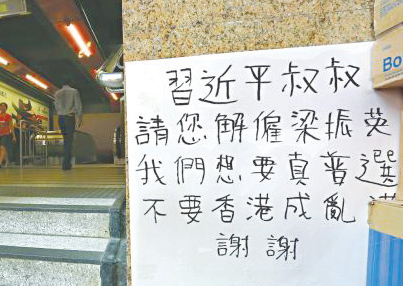 習近平叔叔
請您解僱梁振英
我們想要真普選
不要香港成亂
謝謝
Bo